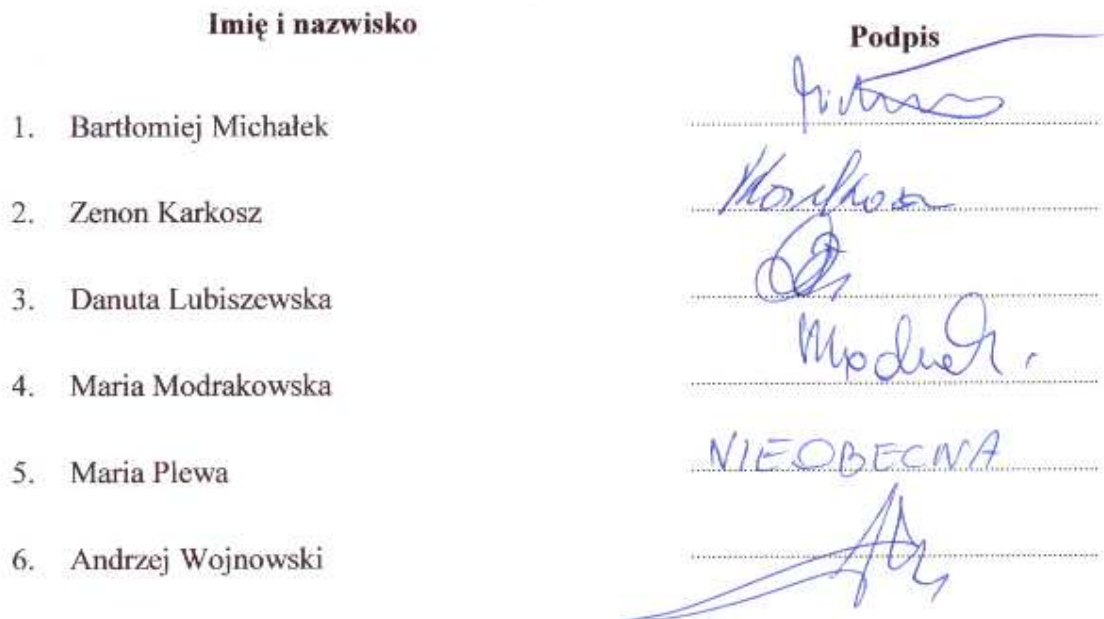 Imię i nazwisko Podpis
1. Bartłomiej Michałek
2. Zenon Karkosz
3. Danuta Lubiszewska
4. Maria Modrakowska
5. Maria Plewa NIEOBECNA
6. Andrzej Wojnowski